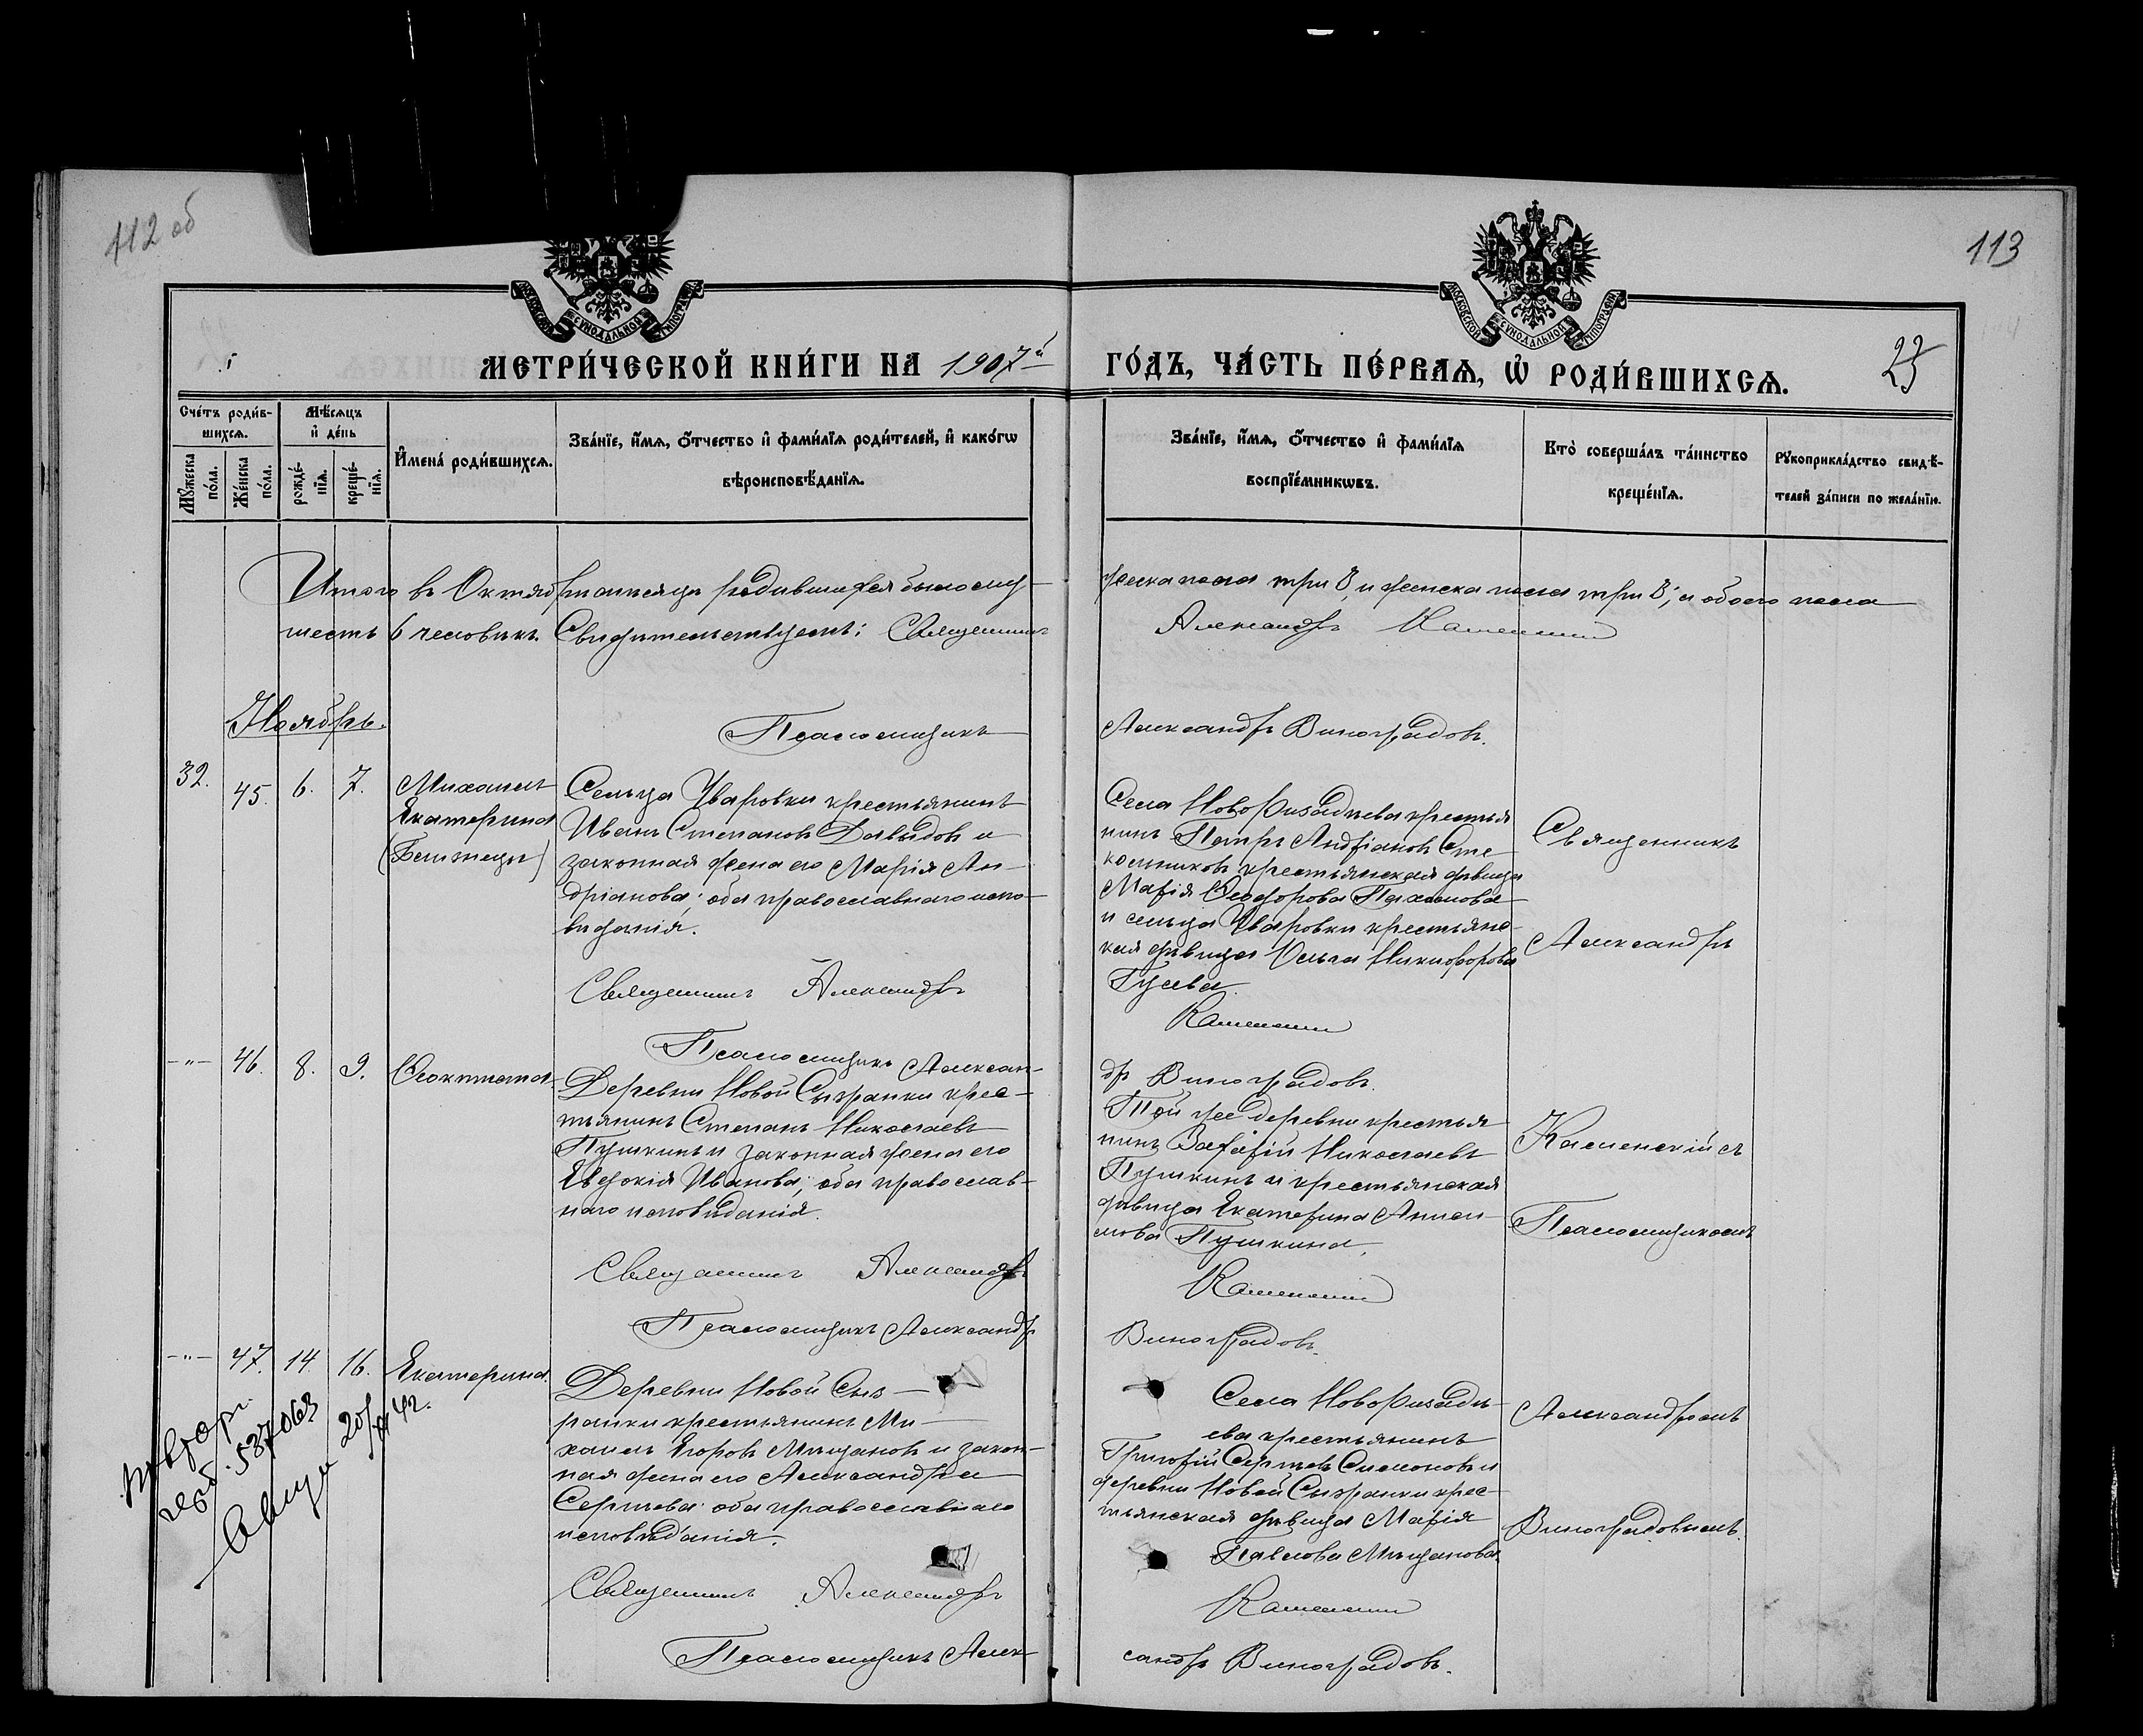 112 об
113
МОСКОВСКОЙ СѴНОДАЛЬНОЙ ТИПОГРАФІИ
МОСКОВСКОЙ СѴНОДАЛЬНОЙ ТИПОГРАФІИ
МЕТРИ́ЧЕСКОЙ КНИ́ГИ НА 1907й ГО́ДЪ, ЧА́СТЬ ПЕ́РВАѦ, Ѡ҆ РОДИ́ВШИХСѦ.
23
Сче́тъ роди́в-
шихсѧ.
Мѣ́сѧцъ
и҆ де́нь
Мꙋ́жеска
по́ла.
Же́нска
по́ла.
рожде́-
нїѧ.
креще́-
нїѧ.
И҆мена̀ роди́вшихсѧ.
Зва́нїе, и҆́мѧ, ѻ҆́тчество и҆ фами́лїѧ роди́телей, и҆ како́гѡ
вѣроисповѣ́данїѧ.
Зва́нїе, и҆́мѧ, ѻ҆́тчество и҆ фами́лїѧ
воспрїе́мникѡвъ.
Кто̀ соверша́лъ та́инство
креще́нїѧ.
Рꙋкоприкла́дство свидѣ́-
телей за́писи по жела́нїю.
Итого въ Октябрѣ мѣсяцѣ родившихся было муж-
жеска пола три 3, и женска пола три 3; а обоего пола
шесть 6 человѣкъ. Свидѣтельствуемъ: Священникъ
Александръ Каменскій
Ноябрь.
Псаломщикъ
Александръ Виноградовъ.
32.
45.
6.
7.
Михаилъ
Екатерина
(Близнецы)
Сельца Уваровки крестьянинъ
Иванъ Степановъ Давыдовъ и
законная жена его Марія Ан-
дріанова; оба православнаго испо-
вѣданія.
Села Новоризадѣева крестья
нинъ Петръ Андріановъ Сте
кольниковъ крестьянская дѣвица
Марія Ѳеодорова Пахомова
и сельца Уваровки крестьянс-
кая дѣвица Ольга Никифорова
Гусева.
Священникъ
Александръ
Священникъ Александръ
Каменскій
Псаломщикъ Алексан-
дръ Виноградовъ.
46.
8.
9.
Ѳеоктиста
Деревни Новой Сызранки крес-
тьянинъ Степанъ Николаевъ
Пушкинъ и законная жена его
Евдокія Иванова; оба православ-
наго исповѣданія.
Той же деревни крестья
нинъ Николаевъ
Пушкинъ и крестьянская
дѣвица Екатерина Аниси-
мова Пушкина.
Каменскій съ
Псаломщикомъ
Священникъ Александръ
Каменскій
Псаломщикъ Александръ
Виноградовъ.
47.
14.
16.
Екатерина.
Деревни Новой Сыз-
ранки крестьянинъ Ми-
хаилъ Егоровъ Мѣщановъ и закон-
ная жена его Александра
Сергѣева: оба православнаго
исповѣданія.
Села Новоризадѣ-
ева крестьянинъ
Григорій Сергѣевъ Симоновъ и
деревни Новой Сызранки крес-
тьянская дѣвица Марія
Павлова Мѣщанова
Александромъ
Виноградовымъ.
Священникъ Александръ
Каменскій
Псаломщикъ Алек-
сандръ Виноградовъ.
537063